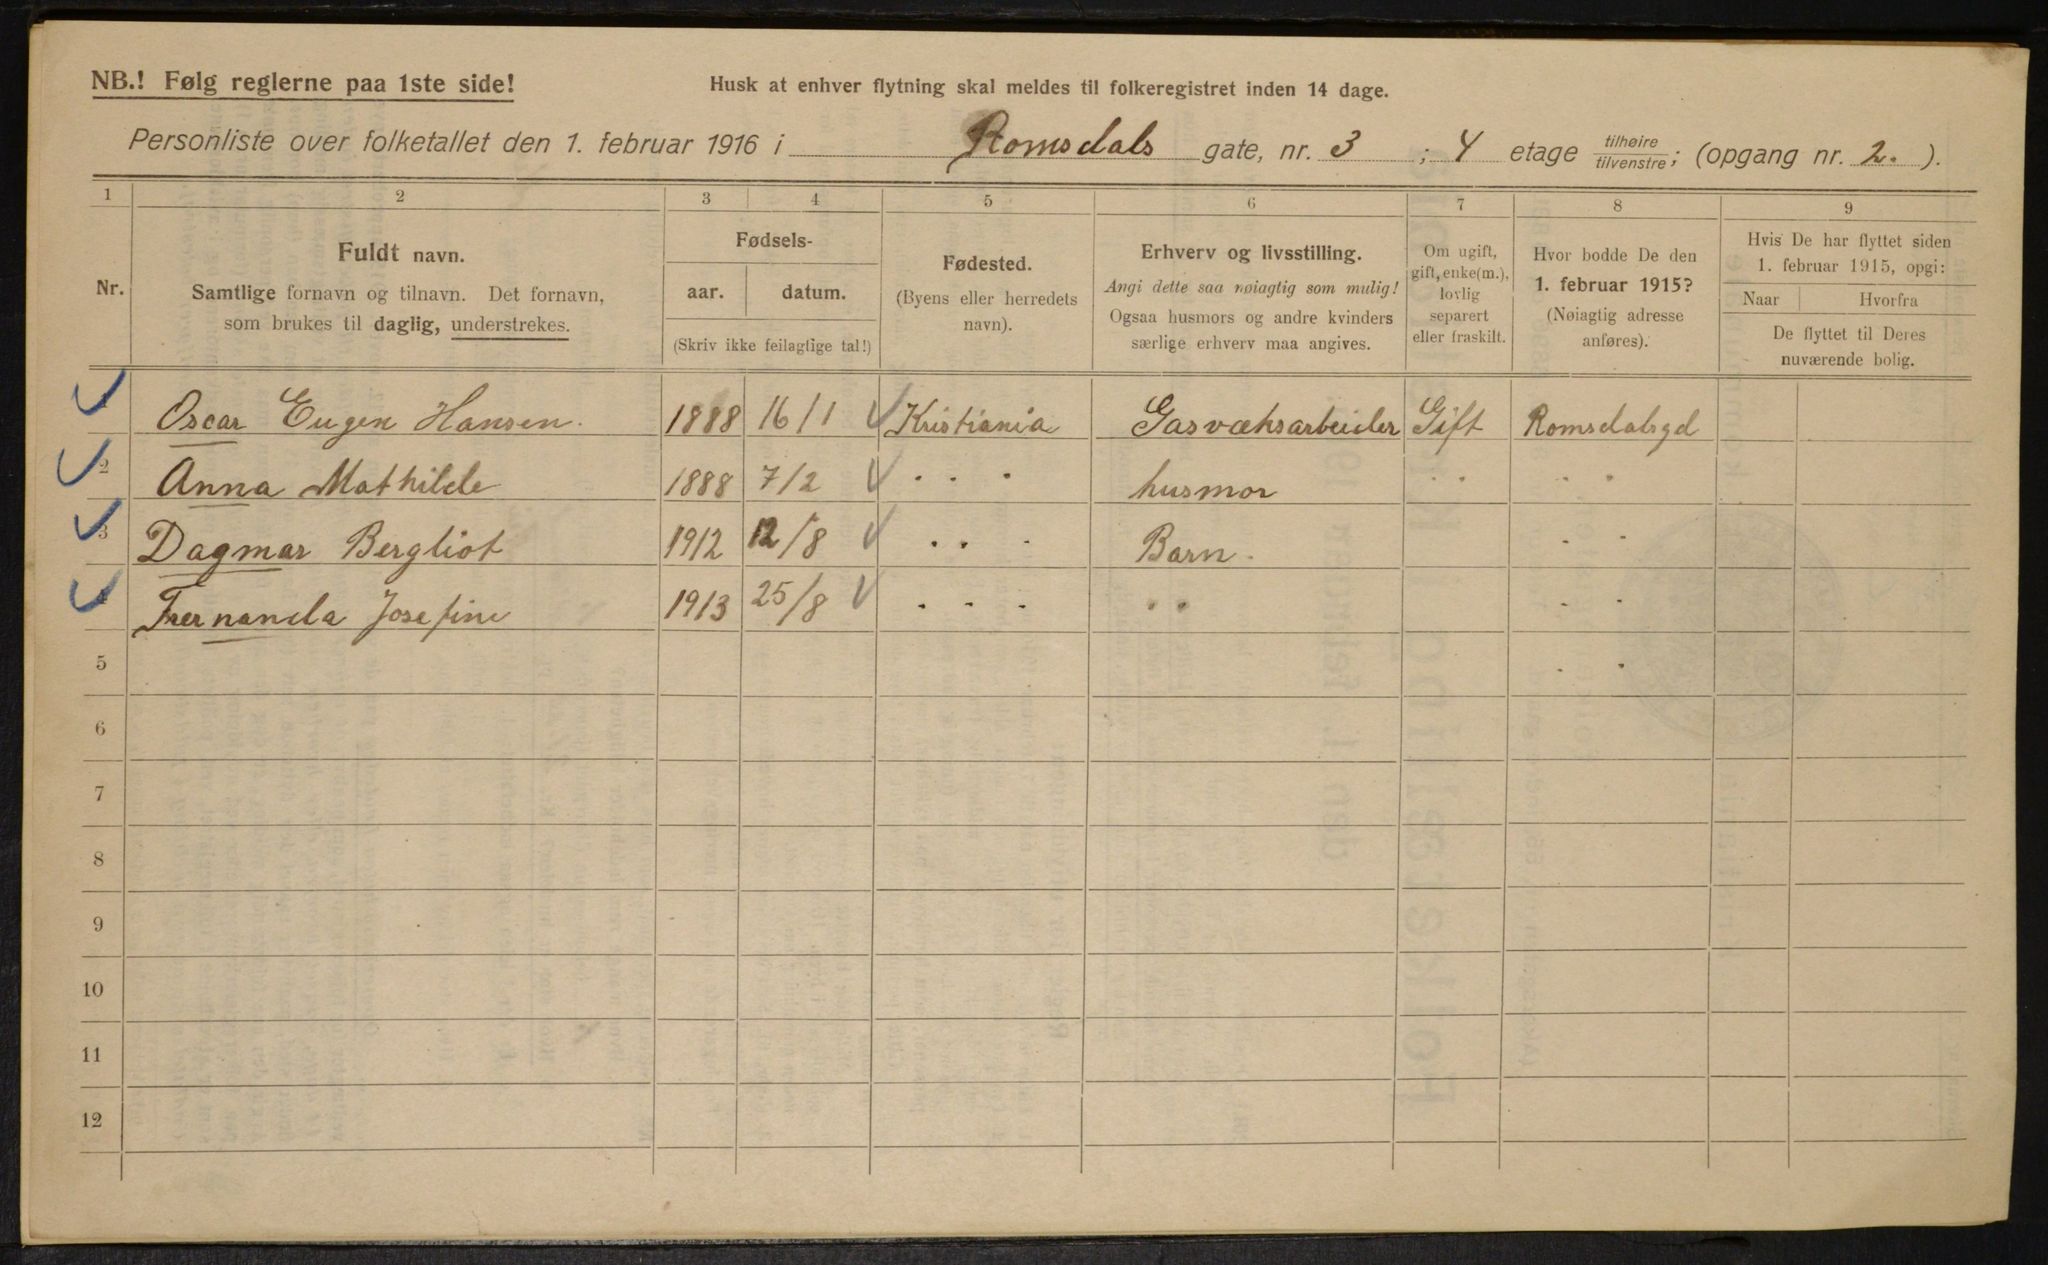 NB.! Følg reglerne paa 1ste side!
Husk at enhver flytning skal meldes til folkeregistret inden 14 dage.
Personliste over folketallet den 1. februar 1916 i Romsdals gate, nr. 3 ; 4 etage tilhøire/tilvenstre; (opgang nr. 2. ).
1 2 3 4 5 6 7 8 9
Nr.
Fuldt navn.
Samtlige fornavn og tilnavn. Det fornavn,
som brukes til daglig, understrekes.
Fødsels-
aar. datum.
(Skriv ikke feilagtige tal!)
Fødested.
(Byens eller herredets
navn).
Erhverv og livsstilling.
Angi dette saa nøiagtig som mulig!
Ogsaa husmors og andre kvinders
særlige erhverv maa angives.
Om ugift,
gift, enke(m.),
lovlig
separert
eller fraskilt.
Hvor bodde De den
1. februar 1915?
(Nøiagtig adresse
anføres).
Hvis De har flyttet siden
1. februar 1915, opgi:
Naar Hvorfra
De flyttet til Deres
nuværende bolig.
Oscar Eugen Hansen. 1888 16/1 Kristiania Gasværksarbeider Gift Romsdalsgd
2 Anna Mathilde 1888 7/2 " " " husmor " " " "
3 Dagmar Bergliot 1912 12/8 " " " Barn. " "
4 Fernanda Josefine 1913 25/8 " " " " " " "
5 " "
6
7
8
9
10
11
12